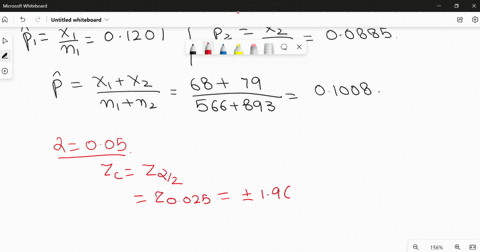 Microsoft Whiteboard
Untitled whiteboard
p̂₁ = x₁/n₁ = 0.1201 | p₂ = x₂ = 0.0885.
p̂ = (x₁ + x₂)/(n₁ + n₂) = (68 + 79)/(566 + 893) = 0.1008.
α = 0.05
Zc = Zα/2
= Z0.025 = ± 1.9
156%